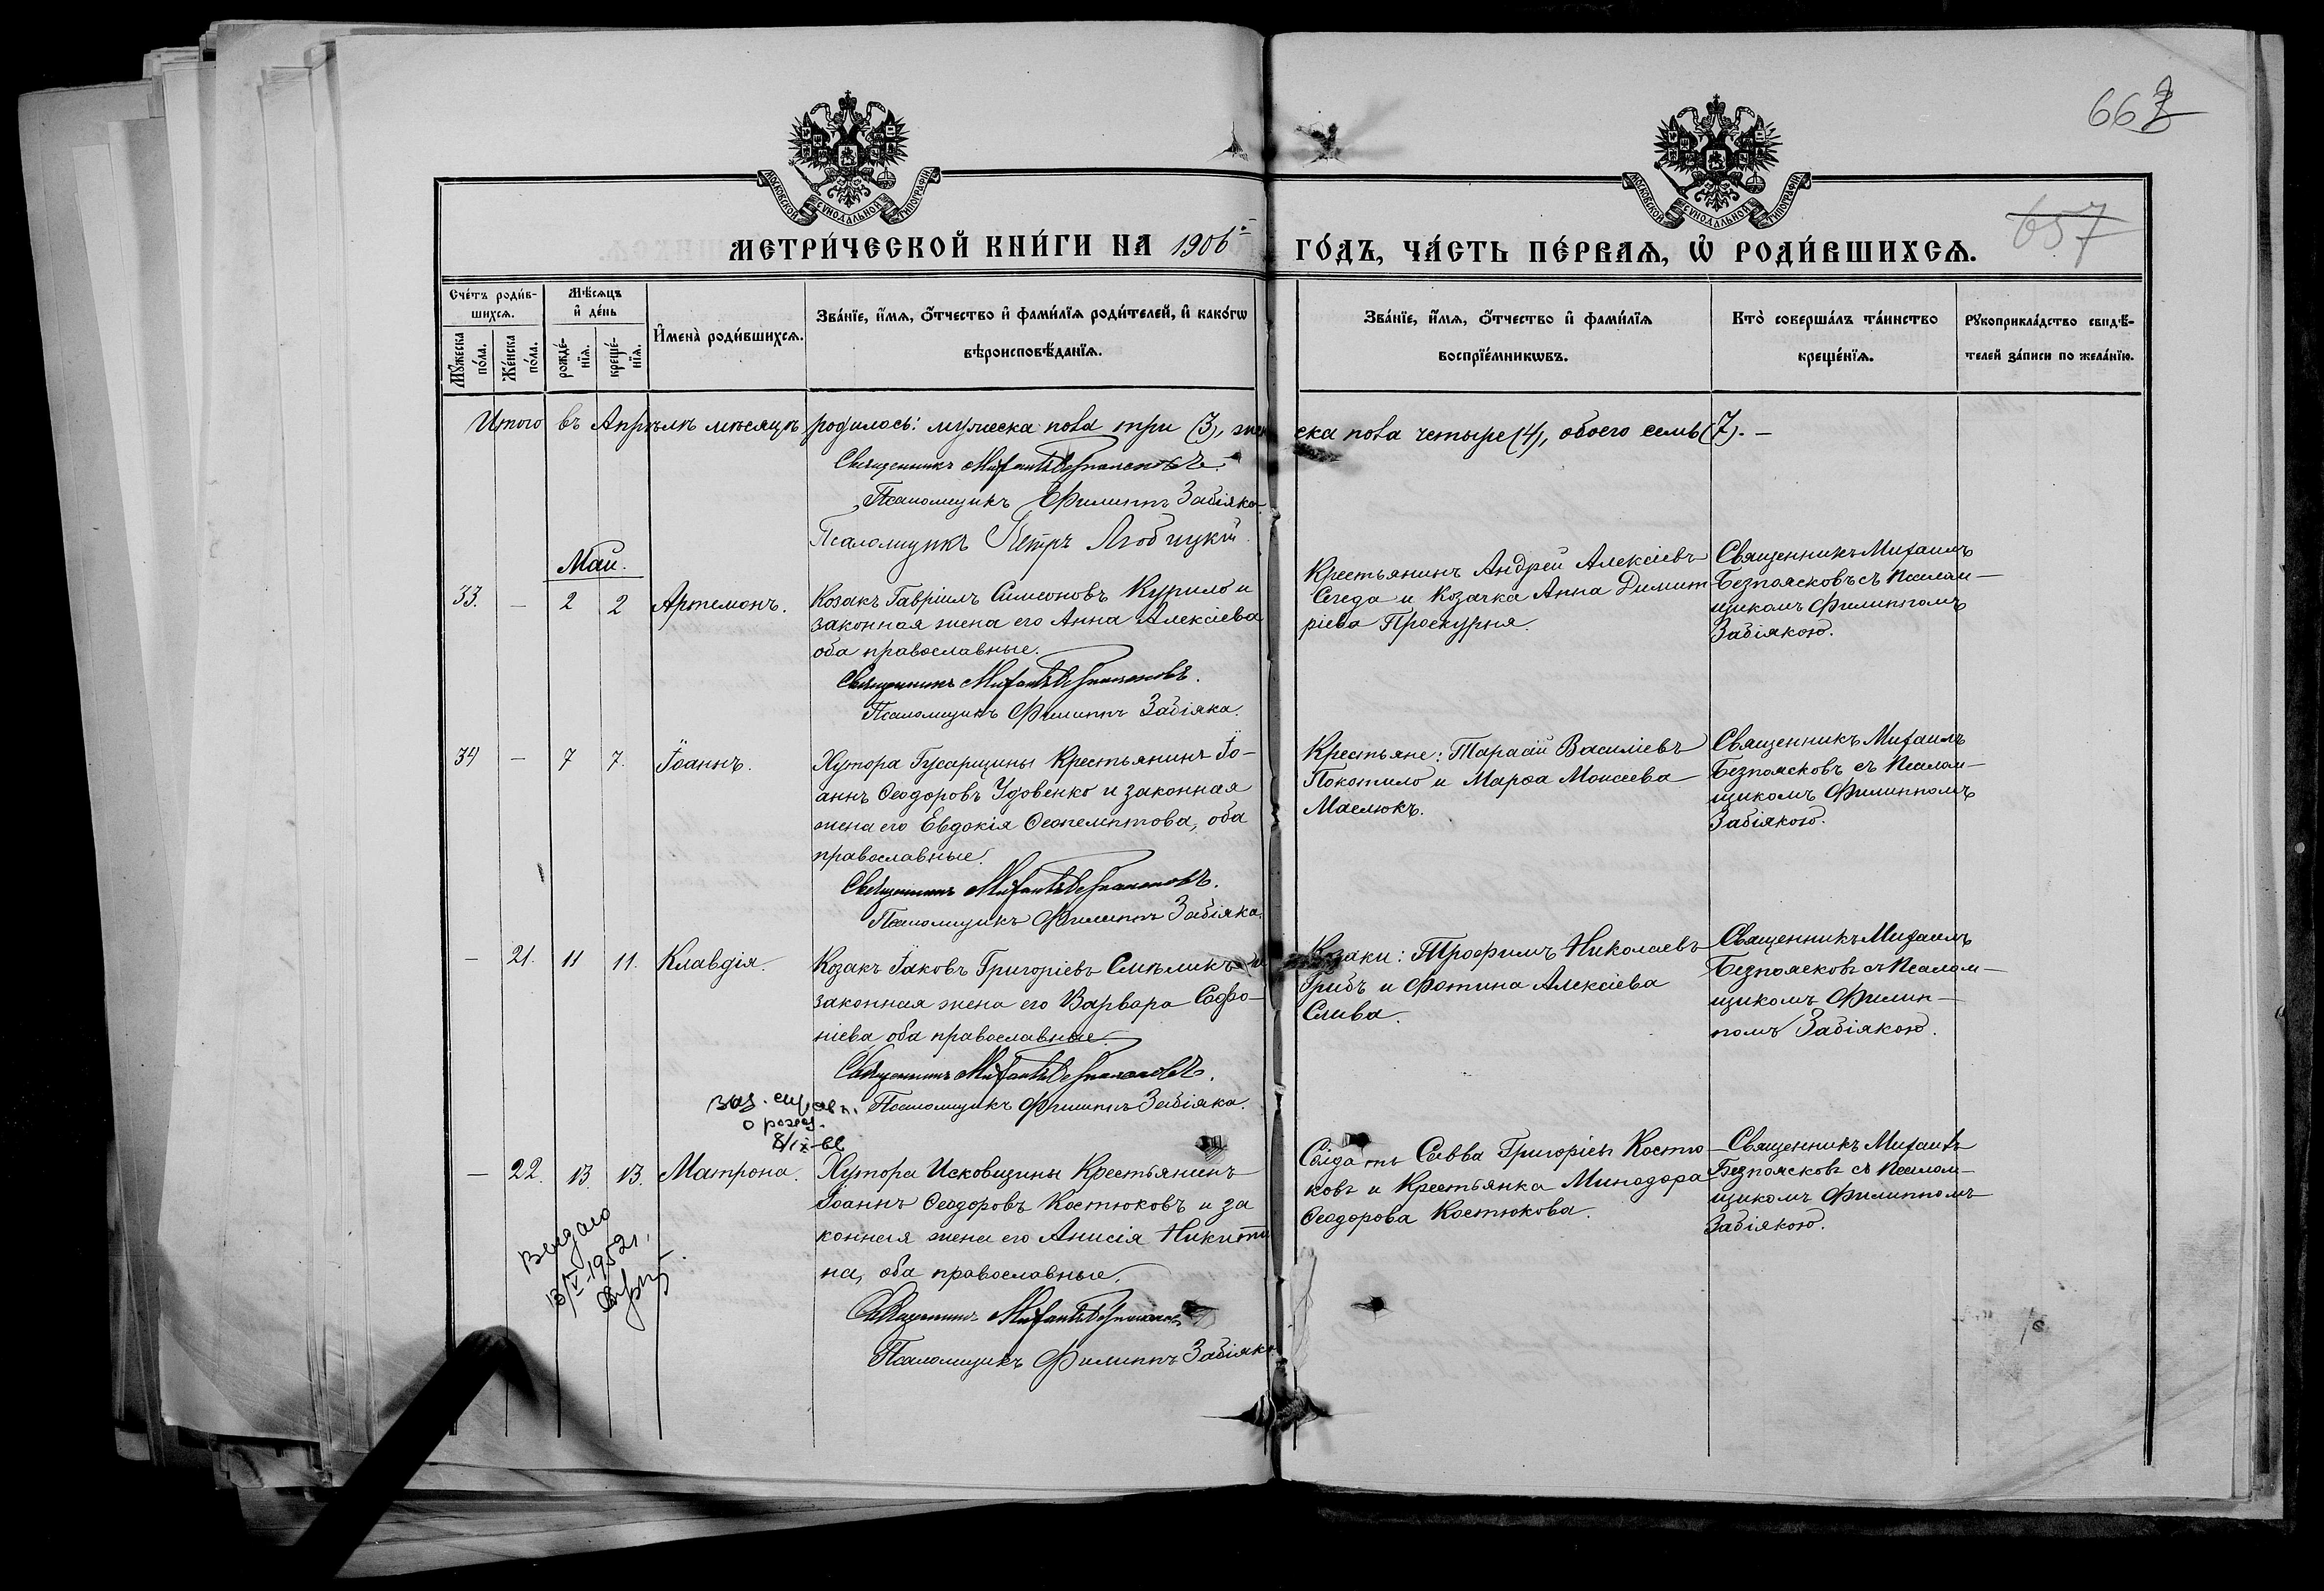 662
657
МОСКОВСКОЙ СѴНОДАЛЬНОЙ ТИПОГРАФІИ
МОСКОВСКОЙ СѴНОДАЛЬНОЙ ТИПОГРАФІИ
МЕТРИ́ЧЕСКОЙ КНИ́ГИ НА 1906 ГО́ДЪ, ЧА́СТЬ ПЕ́РВАѦ, Ѽ РОДИ́ВШИХСѦ.
Сче́тъ роди́вшихсѧ.
Мѹ́жеска по́ла.
Же́нска по́ла.
Мѣ́сѧцъ и҆ де́нь
рожде́нїѧ.
креще́нїѧ.
И҆мена̀ роди́вшихсѧ.
Зва́нїе, и҆́мѧ, ѻ҆́тчество и҆ фами́лїѧ роди́телей, и҆ како́гѡ
вѣроисповѣ́данїѧ.
Зва́нїе, и҆́мѧ, ѻ҆́тчество и҆ фами́лїѧ
воспрїе́мникѡвъ.
Кто̀ соверша́лъ та́инство
креще́нїѧ.
Рѹкоприкла́дство свидѣ́-
телей за́писи по жела́нїю.
Итого въ Апрѣлѣ мѣсяцѣ родилось: мужеска пола три (3), женска пола четыре (4), обоего семь (7). —
Священникъ Михаилъ Безпоясковъ.
Псаломщикъ Филиппъ Забіяка.
Псаломщикъ Петръ
Май.
33. — 2 2 Артемонъ.
Козакъ Гавріилъ Симеоновъ Курило и
законная жена его Анна Алексіева
оба православные.
Священникъ Михаилъ Безпоясковъ.
Псаломщикъ Филиппъ Забіяка.
Крестьянинъ Андрей Алексіевъ
Сегеда и Козачка Анна Димит
ріева Проскурня.
Священникъ Михаилъ
Безпоясковъ съ Псалом—
щикомъ Филиппомъ
Забіякою.
34 — 7 7. Іоаннъ.
Хутора Гусарщины Крестьянинъ Іо-
аннъ Ѳеодоровъ Удовенко и законная
жена его Евдокія Ѳеопемптова, оба
православные.
Священникъ Михаилъ Безпоясковъ.
Псаломщикъ Филиппъ Забіяка.
Крестьяне: Тарасій Василіевъ
Покотило и Марѳа Моисеева
Маслюкъ.
Священникъ Михаилъ
Безпоясковъ съ Псалом—
щикомъ Филиппомъ
Забіякою.
— 21. 11 11. Клавдія.
Козакъ Іаковъ Григоріевъ Смѣликъ и
законная жена его Варвара Софо-
ніева, оба православные.
Священникъ Михаилъ Безпоясковъ.
Псаломщикъ Филиппъ Забіяка.
Козаки: Трофимъ Николаевъ
Грибъ и Фотина Алексіева
Слива.
Священникъ Михаилъ
Безпоясковъ съ Псалом—
щикомъ Филип—
помъ Забіякою.
о рожд.
— 22. 13. 13. Матрона.
Хутора Исковщины Крестьянинъ
Іоаннъ Ѳеодоровъ Костюковъ и за
конная жена его Анисія Никити
на, оба православные.
Священникъ Михаилъ Безпоясковъ
Псаломщикъ Филиппъ Забіяка
Солдатъ Савва Григоріевъ Костю
ковъ и Крестьянка Минодора
Ѳеодорова Костюкова.
Священникъ Михаилъ
Безпоясковъ съ Псалом—
щикомъ Филиппомъ
Забіякою.
13/V-1952г.